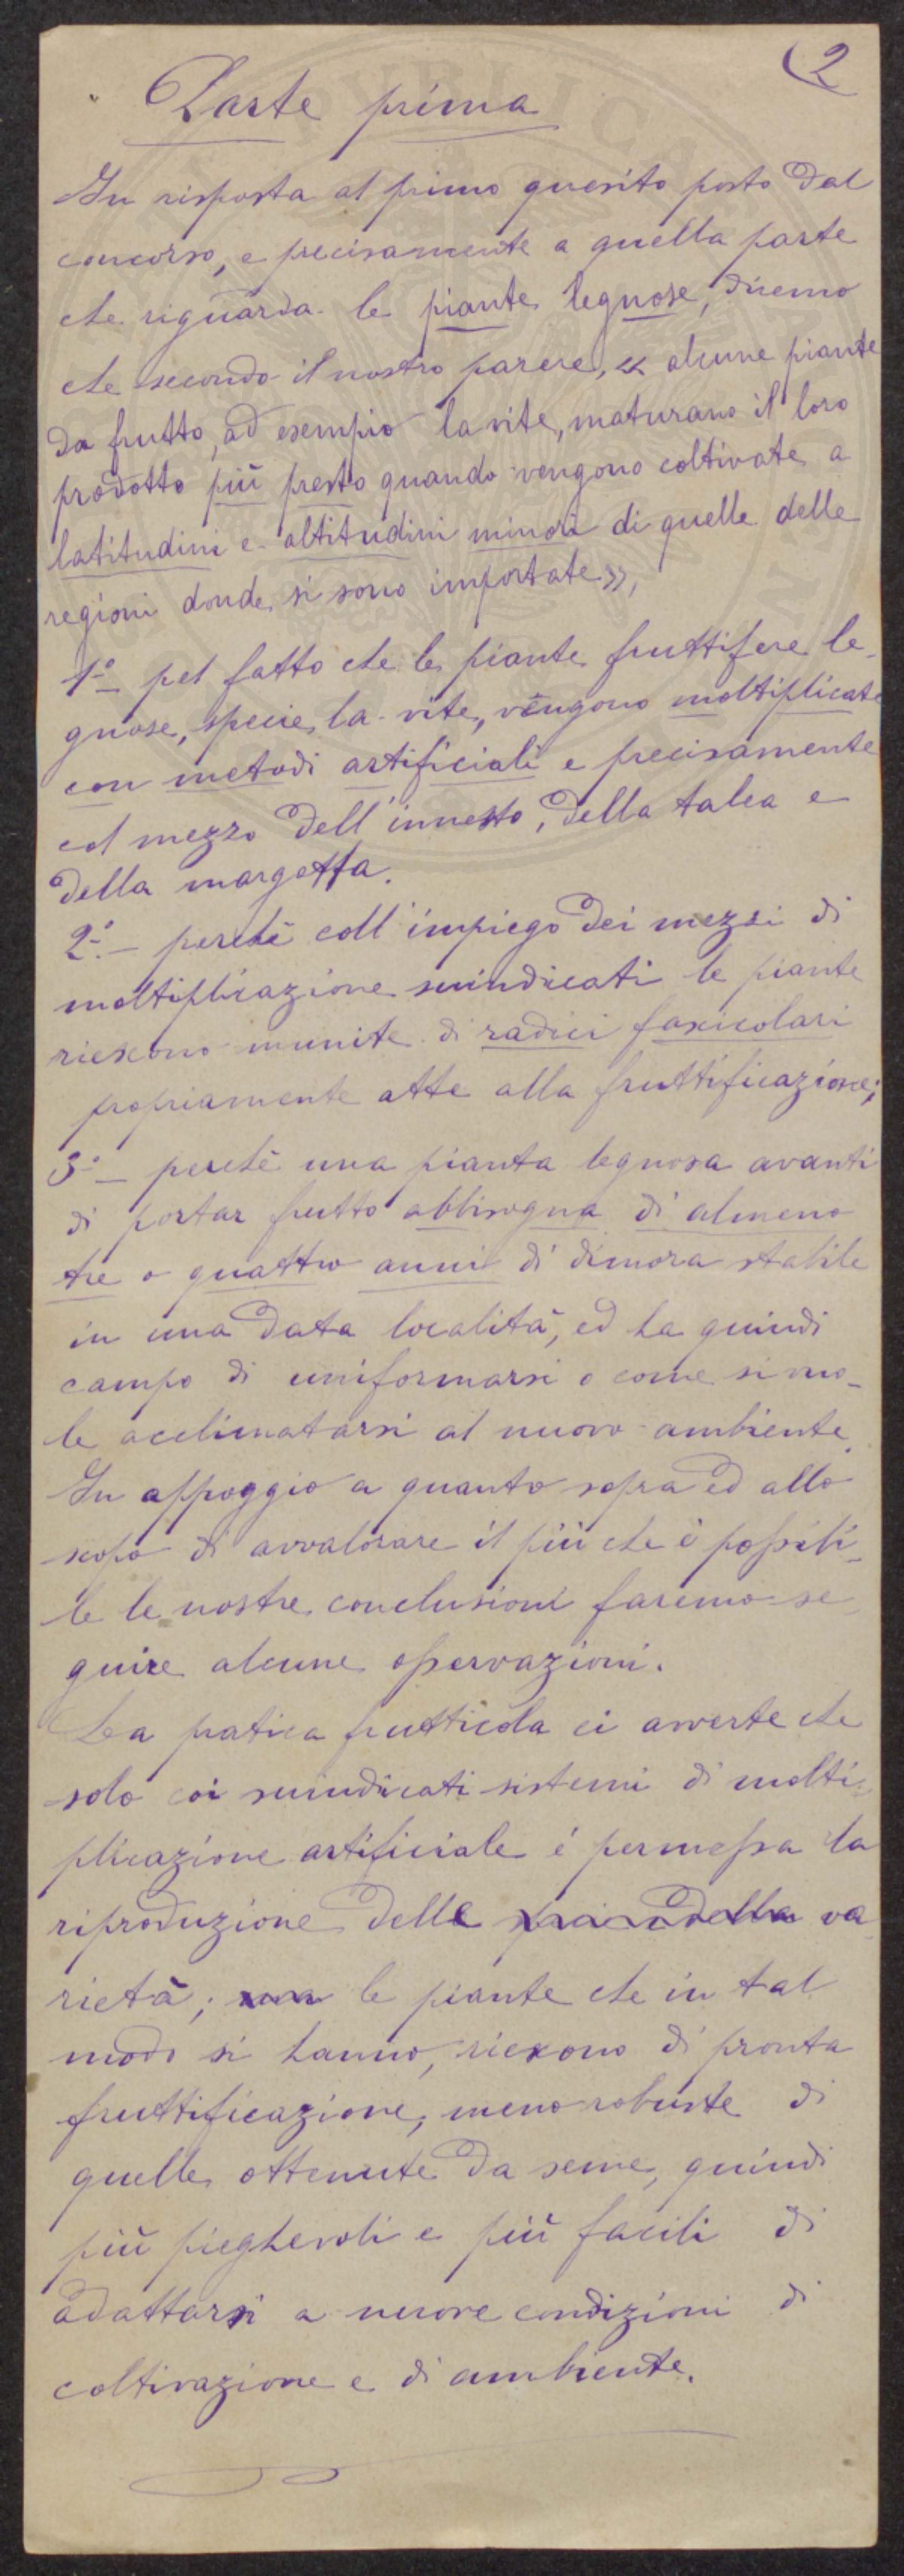 2
Parte prima
In risposta al primo quesito posto dal
concorso, e precisamente a quella parte
che riguarda le piante legnose, diremo
che secondo il nostro parere, « alcune piante
da frutto, ad esempio la vite, maturano il loro
prodotto più presto quando vengono coltivate a
latitudini e altitudini minori di quelle delle
regioni donde si sono importate »,
1º— pel fatto che le piante fruttifere le-
gnose, specie la vite, vengono moltiplicate
con metodi artificiali e precisamente
col mezzo dell'innesto, della talea e
della margotta.
2º.— perchè coll'impiego dei mezzi di
moltiplicazione suindicati le piante
riescono munite di radici fascicolari
propriamente atte alla fruttificazione;
3º— perchè una pianta legnosa avanti
di portar frutto abbisogna di almeno
tre o quattro anni di dimora stabile
in una data località, ed ha quindi
campo di uniformarsi o come si vuo-
le acclimatarsi al nuovo ambiente.
In appoggio a quanto sopra ed allo
scopo di avvalorare il più che è possibi-
le le nostre conclusioni faremo se-
guire alcune osservazioni.
La pratica frutticola ci avverte che
solo coi suindicati sistemi di molti-
plicazione artificiale è permessa la
riproduzione delle va
rietà; le piante che in tal
modo si hanno, riescono di pronta
fruttificazione, meno robuste di
quelle ottenute da seme, quindi
più pieghevoli e più facili di
adattarsi a nuove condizioni di
coltivazione e di ambiente.